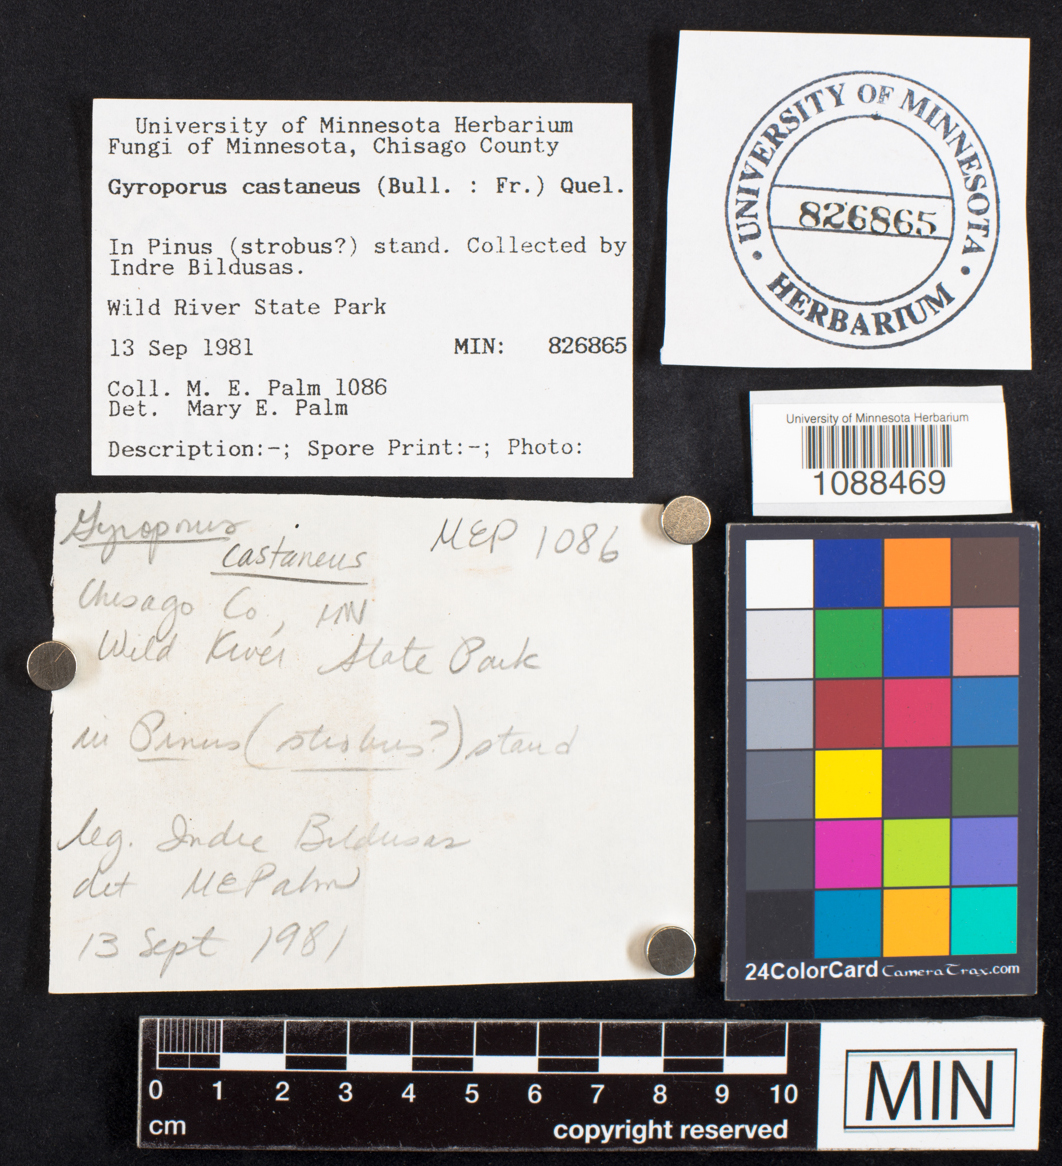 University of Minnesota Herbarium
Fungi of Minnesota, Chisago County
Gyroporus castaneus (Bull. : Fr.) Quel.
In Pinus (strobus?) stand. Collected by
Indre Bildusas.
Wild River State Park
13 Sep 1981 MIN: 826865
Coll. M. E. Palm 1086
Det. Mary E. Palm
Description:-; Spore Print:-; Photo:
UNIVERSITY OF MINNESOTA
826865
HERBARIUM
University of Minnesota Herbarium
1088469
Gyroporus
castaneus
MEP 1086
Chisago Co, MN
Wild River State Park
in Pinus (strobus?) stand
leg. Indre Bildusas
det MEPalm
13 Sept 1981
24ColorCard CameraTrax.com
0 1 2 3 4 5 6 7 8 9 10
cm copyright reserved
MIN